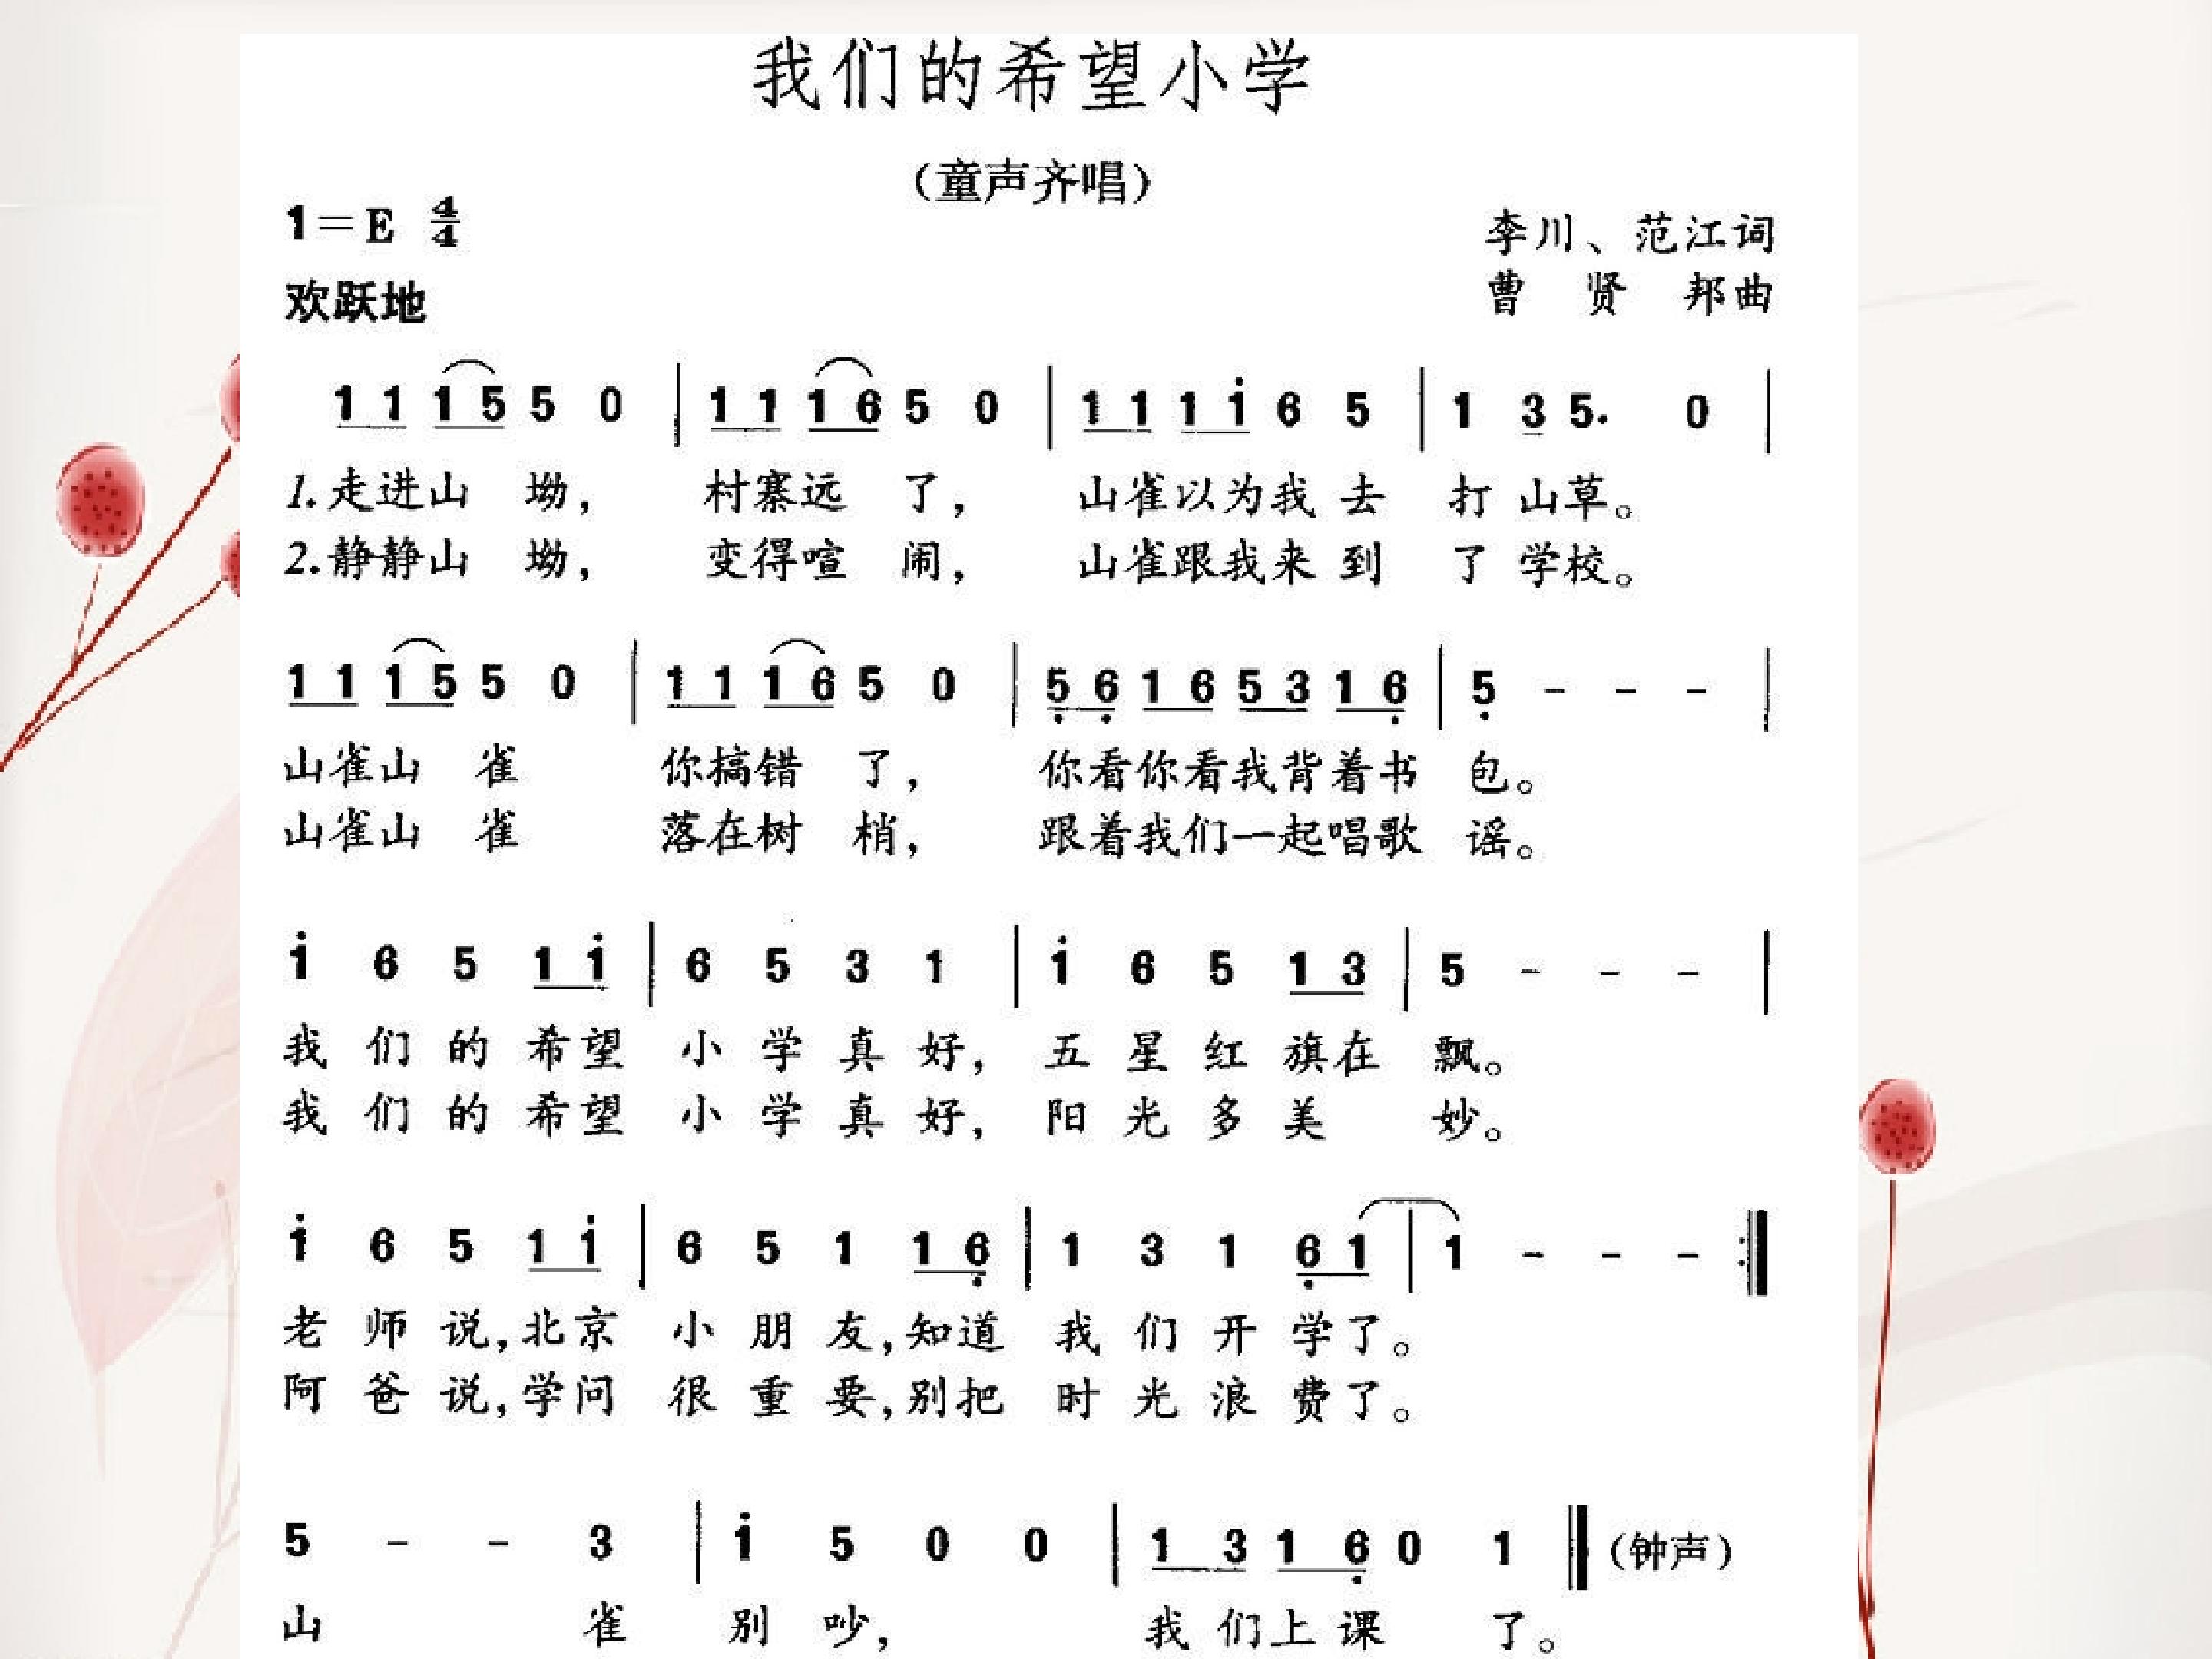 我们的希望小学
（童声齐唱）
1=E 4/4
李川、范江词
欢跃地
曹 贤 邦曲
1 1 1 5 5 0 | 1 1 1 6 5 0 | 1 1 1 i 6 5 | 1 3 5. 0 |
1.走进山 坳， 村寨远 了， 山雀以为我 去 打 山草。
2.静静山 坳， 变得喧 闹， 山雀跟我来 到 了 学校。
1 1 1 5 5 0 | 1 1 1 6 5 0 | 5̣ 6̣ 1 6 5 3 1 6̣ | 5̣ - - - |
山雀山 雀 你搞错 了， 你看你看我背着书 包。
山雀山 雀 落在树 梢， 跟着我们一起唱歌 谣。
i 6 5 1 i | 6 5 3 1 | i 6 5 1 3 | 5 - - - |
我 们 的 希望 小 学 真 好， 五 星 红 旗在 飘。
我 们 的 希望 小 学 真 好， 阳 光 多 美 妙。
i 6 5 1 i | 6 5 1 1 6̣ | 1 3 1 6̣ 1 | 1 - - - :‖
老 师 说，北京 小 朋 友，知道 我 们 开 学了。
阿 爸 说，学问 很 重 要，别把 时 光 浪 费了。
5 - - 3 | i 5 0 0 | 1 3 1 6̣ 0 1 ‖（钟声）
山 雀 别 吵， 我 们上 课 了。